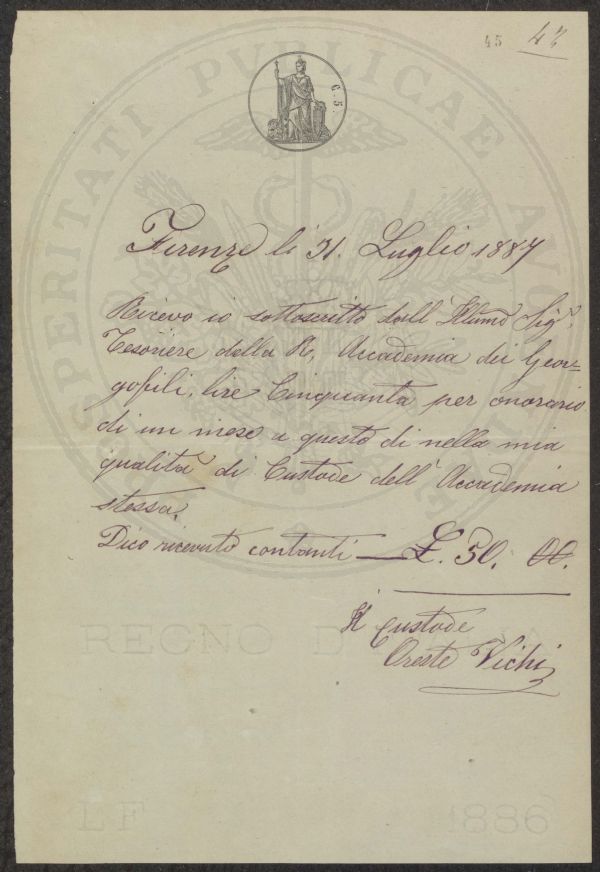 45 43
C. 5.
Firenze lì 31. Luglio 1887
Ricevo io sottoscritto dall' Illumo Sigr.
Tesoriere della R. Accademia dei Geor=
gofili, lire Cinquanta per onorario
di un mese a questo dì nella mia
qualità di Custode dell' Accademia
stessa.
Dico ricevuto contanti — £. 50. 00.
Il Custode
Oreste Vichi
PROSPERITATI PVBLICAE AVGENDAE
REGNO D'ITALIA
LF 1886